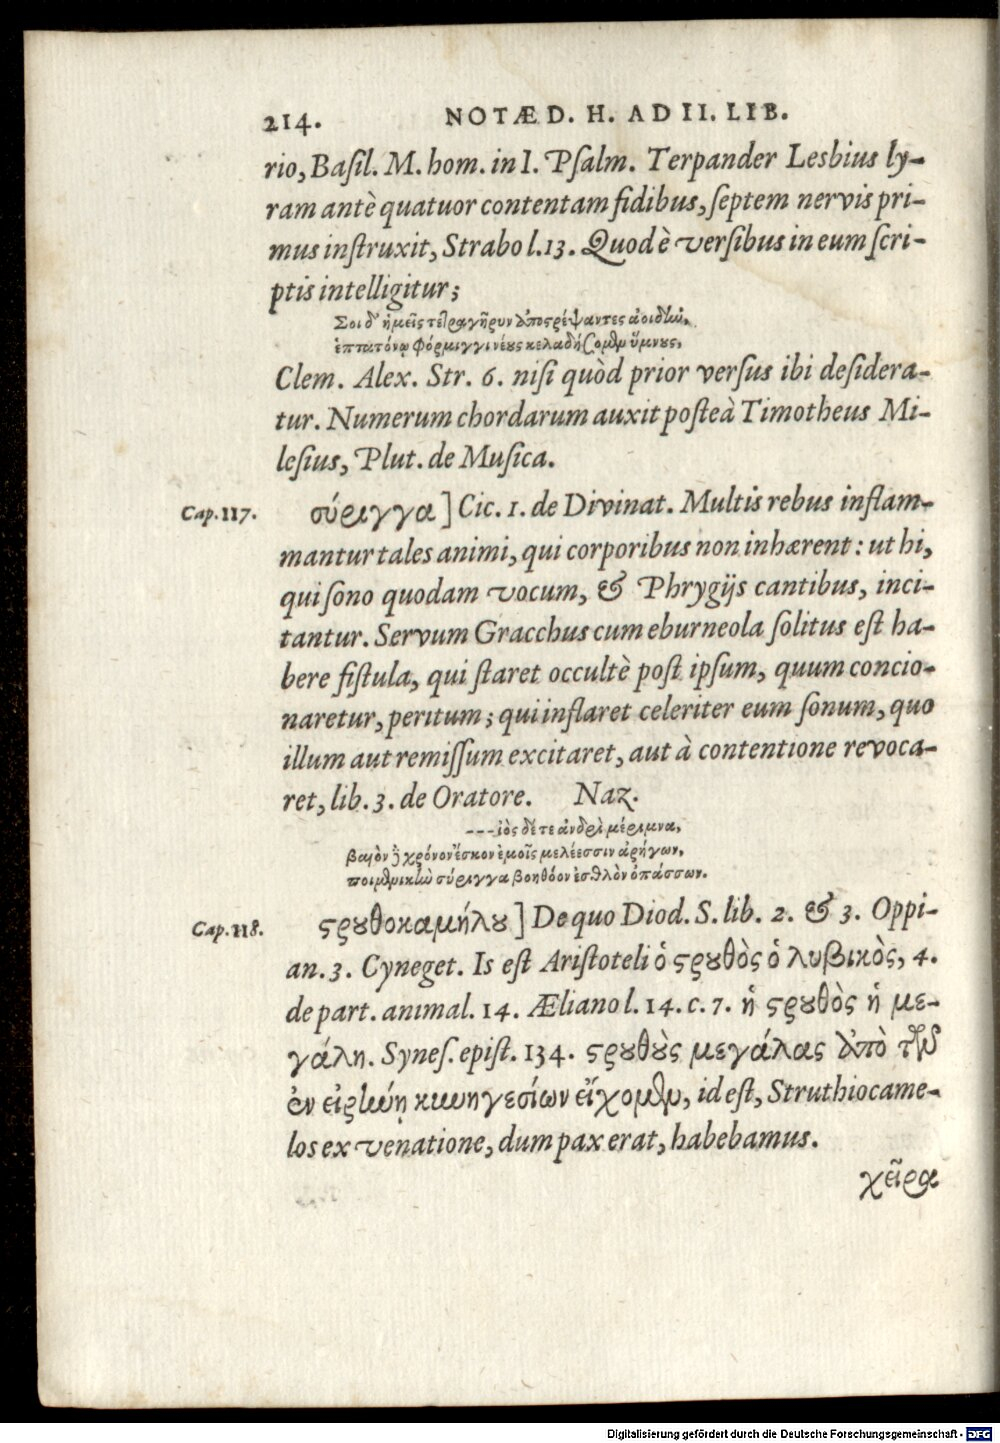 214. NOTÆ D. H. AD II. LIB.
rio, Baſil. M. hom. in I. Pſalm. Terpander Lesbius ly-
ram antè quatuor contentam fidibus, ſeptem nervis pri-
mus inſtruxit, Strabo l.13. Quod è verſibus in eum ſcri-
ptis intelligitur;
Σοι δ' ἡμεῖς τετραγῆρυν ἀποςρέψαντες ἀοιδὴν,
ἑπτατόνῳ φόρμιγγι νέους κελαδήσομεν ὕμνους,
Clem. Alex. Str. 6. niſi quòd prior verſus ibi deſidera-
tur. Numerum chordarum auxit poſteà Timotheus Mi-
leſius, Plut. de Muſica.
Cap. 117. σύριγγα] Cic. 1. de Divinat. Multis rebus inflam-
mantur tales animi, qui corporibus non inhærent: ut hi,
qui ſono quodam vocum, & Phrygijs cantibus, inci-
tantur. Servum Gracchus cum eburneola ſolitus eſt ha-
bere fiſtula, qui ſtaret occultè poſt ipſum, quum concio-
naretur, peritum; qui inflaret celeriter eum ſonum, quo
illum aut remiſſum excitaret, aut à contentione revoca-
ret, lib. 3. de Oratore. Naz.
---ἰὸς δέ τε ἀνδρὶ μέριμνα,
βαιὸν δὲ χρόνον ἔσκον ἐμοῖς μελέεσσιν ἀρήγων,
ποιμενικὴν σύριγγα βοηθόον ἐσθλὸν ὀπάσσων.
Cap. 118. ςρουθοκαμήλου] De quo Diod. S. lib. 2. & 3. Oppi-
an. 3. Cyneget. Is eſt Ariſtoteli ὁ ςρουθὸς ὁ λυβικὸς, 4.
de part. animal. 14. Æliano l. 14. c. 7. ἡ ςρουθὸς ἡ με-
γάλη. Syneſ. epiſt. 134. ςρουθοὺς μεγάλας ἀπὸ τῶν
ἐν εἰρήνῃ κυνηγεσίων εἴχομεν, id eſt, Struthiocame-
los ex venatione, dum pax erat, habebamus.
χεῖρα
Digitalisierung gefördert durch die Deutsche Forschungsgemeinschaft - DFG